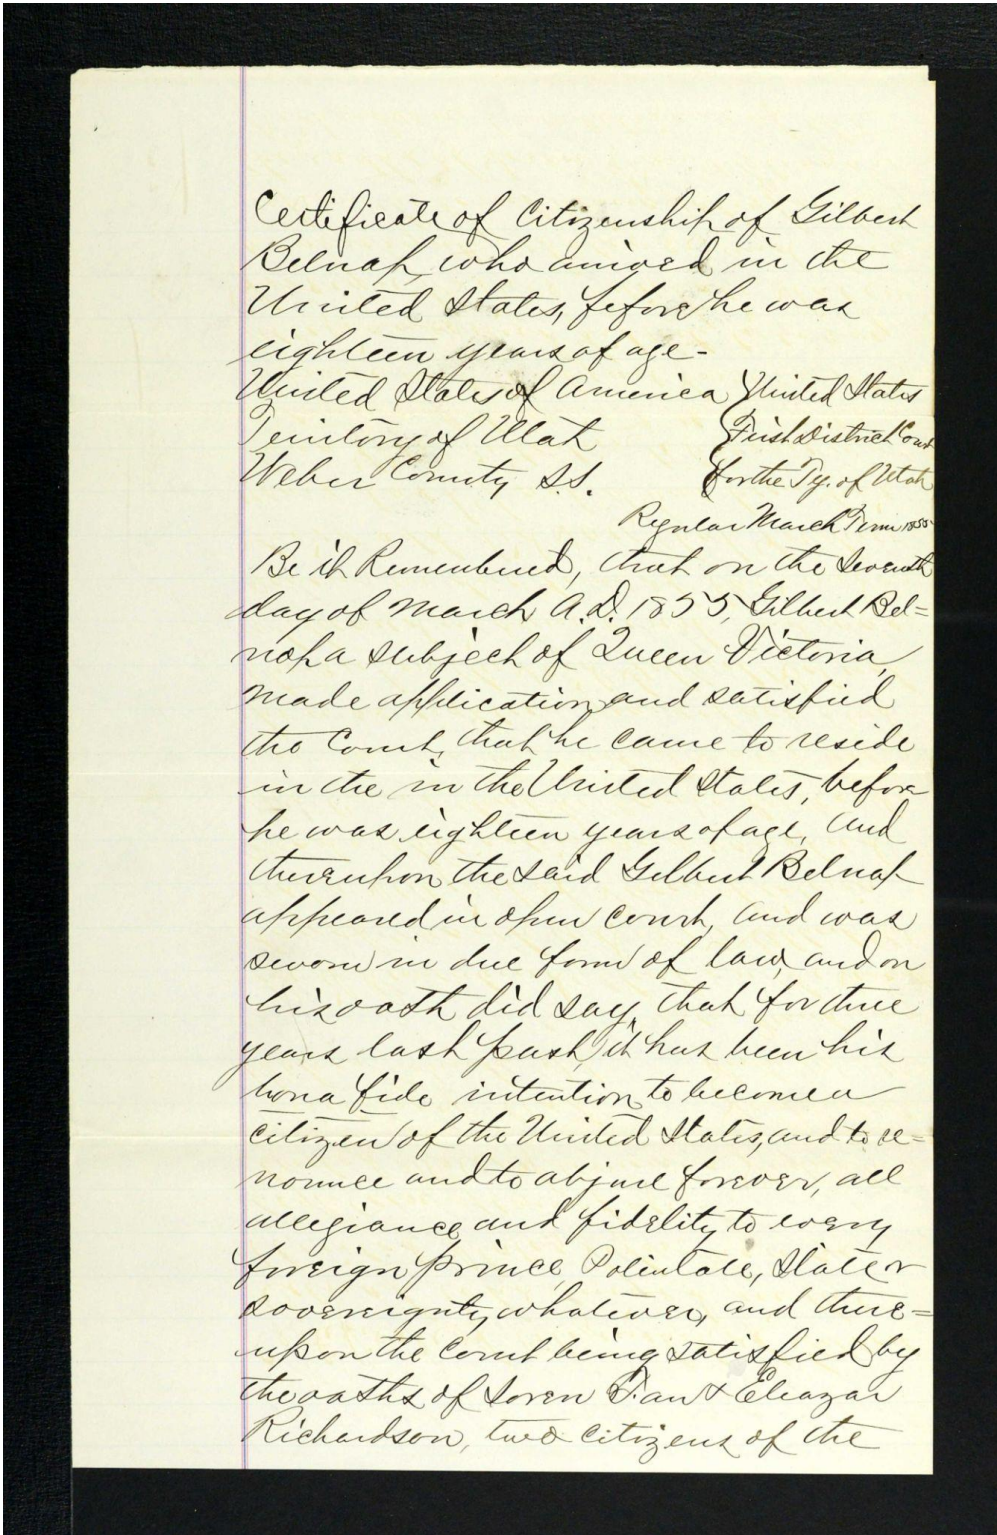 Certificate of Citizenship of Gilbert
Belnap, who arrived in the
United States, before he was
eighteen years of age-
United States of America } United States
Territory of Utah } First District Court
Weber County S.S. } for the Ty. of Utah
Regular March Term 1855
Be it Remembered, that on the seventh
day of March A.D. 1855, Gilbert Bel=
nap a subject of Queen Victoria,
made application and satisfied
the Court, that he came to reside
in the in the United States, before
he was eighteen years of age, and
thereupon the said Gilbert Belnap
appeared in open court, and was
sworn in due form of law, and on
his oath did say, that for three
years last past, it has been his
bona fide intention to become a
citizen of the United States, and to re=
nounce and to abjure forever, all
allegiance and fidelity to every
foreign prince, Potentate, State or
sovereignty whatever, and there=
upon the Court being satisfied by
the oaths of Loren & Eleazar
Richardson, two citizens of the